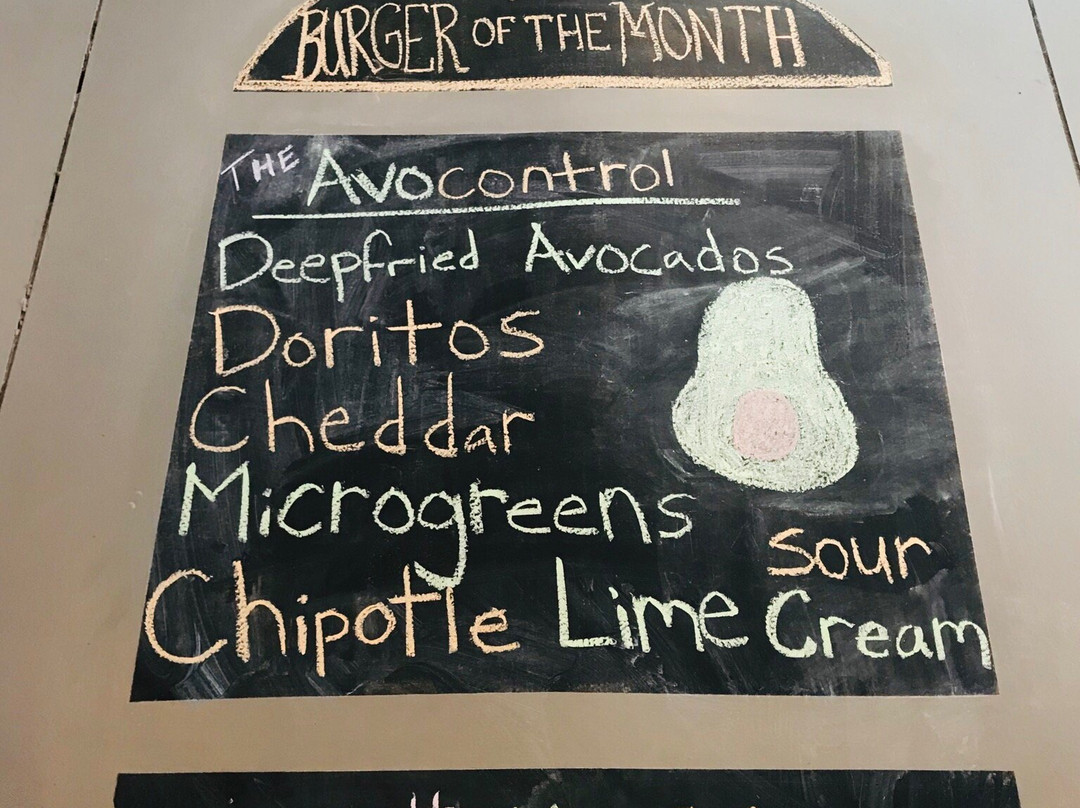 BURGER OF THE MONTH
THE Avocontrol
Deepfried Avocados
Doritos
Cheddar
Microgreens
Chipotle Lime Sour Cream